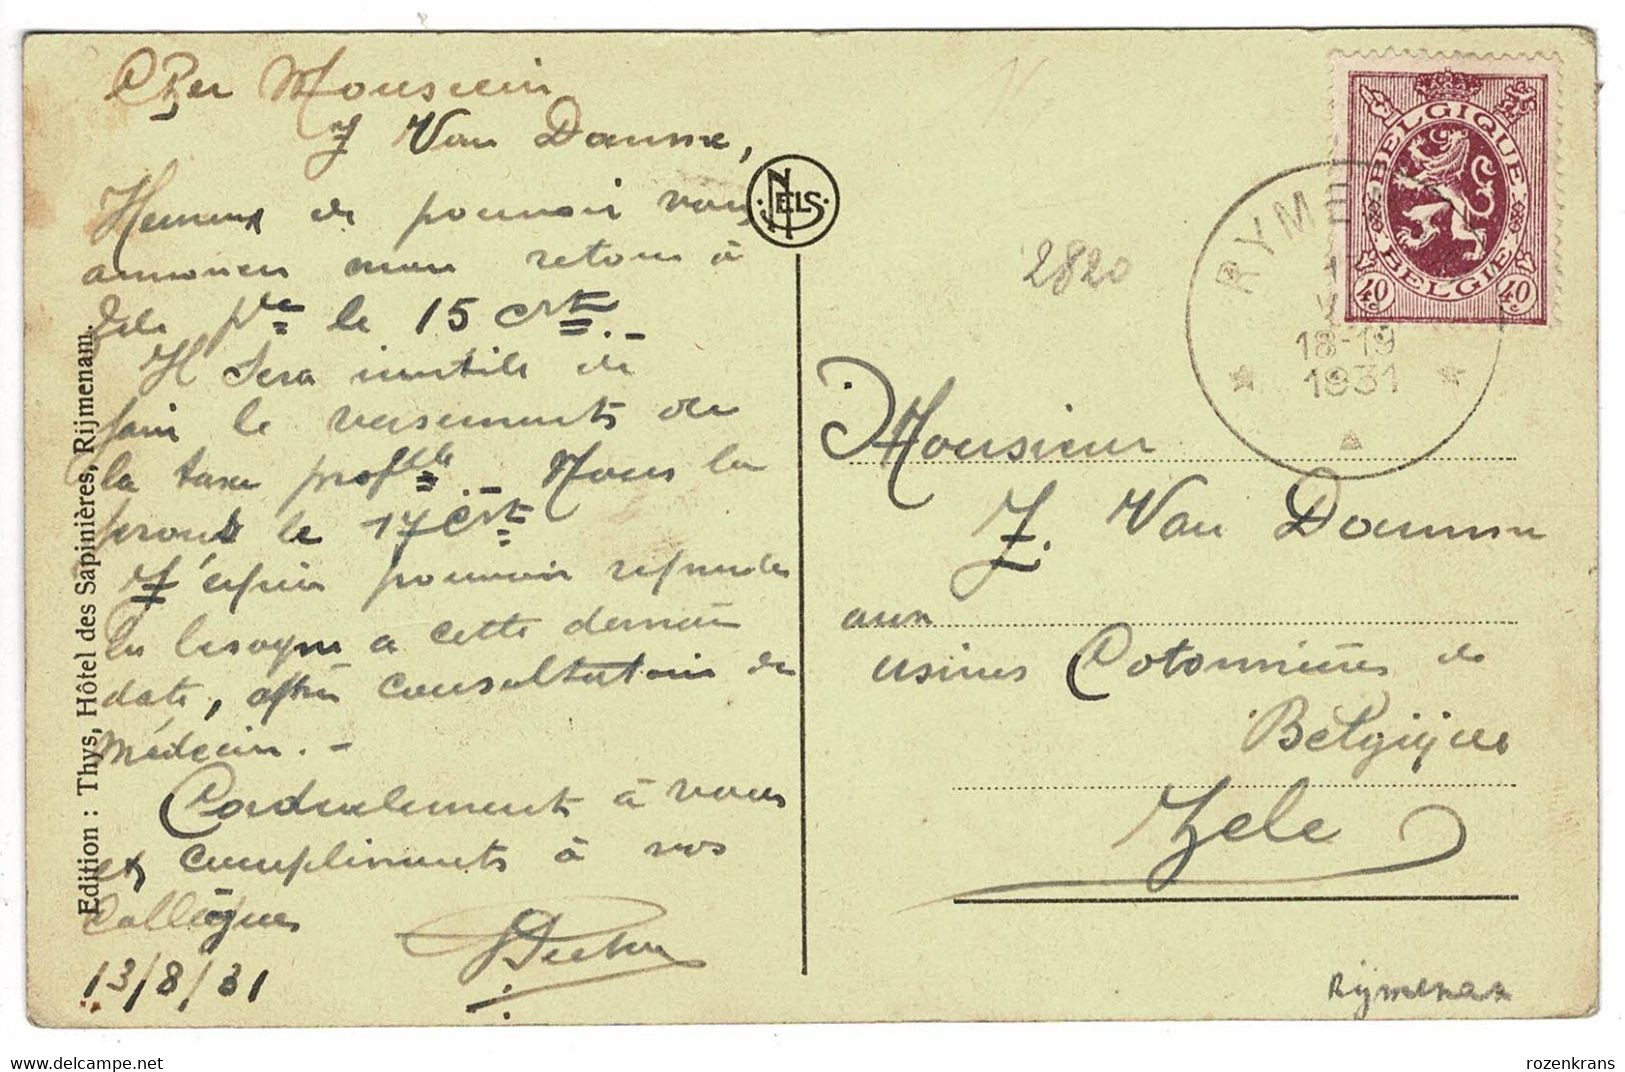 Cher Monsieur
J Van Damme,
Heureux de pouvoir vous
annoncer mon retour à
Zele pr le 15 crt. –
Il sera inutile de
faire le versements de
la taxe profelle. – Nous la
ferons le 17 Crt
J'espère pouvoir reprendre
la besogne a cette dernière
date, après consultation du
Médecin. –
Cordialement à vous
et compliments à nos
Collègues
13/8/31
Edition : Thys, Hôtel des Sapinières, Rijmenam.
NELS
2820
BELGIQUE
BELGIE
40 40
RYME
18-19
1931
Monsieur
J. Van Damme
aux
usines Cotonnières de
Belgique
Zele
Rijmenam
rozenkrans